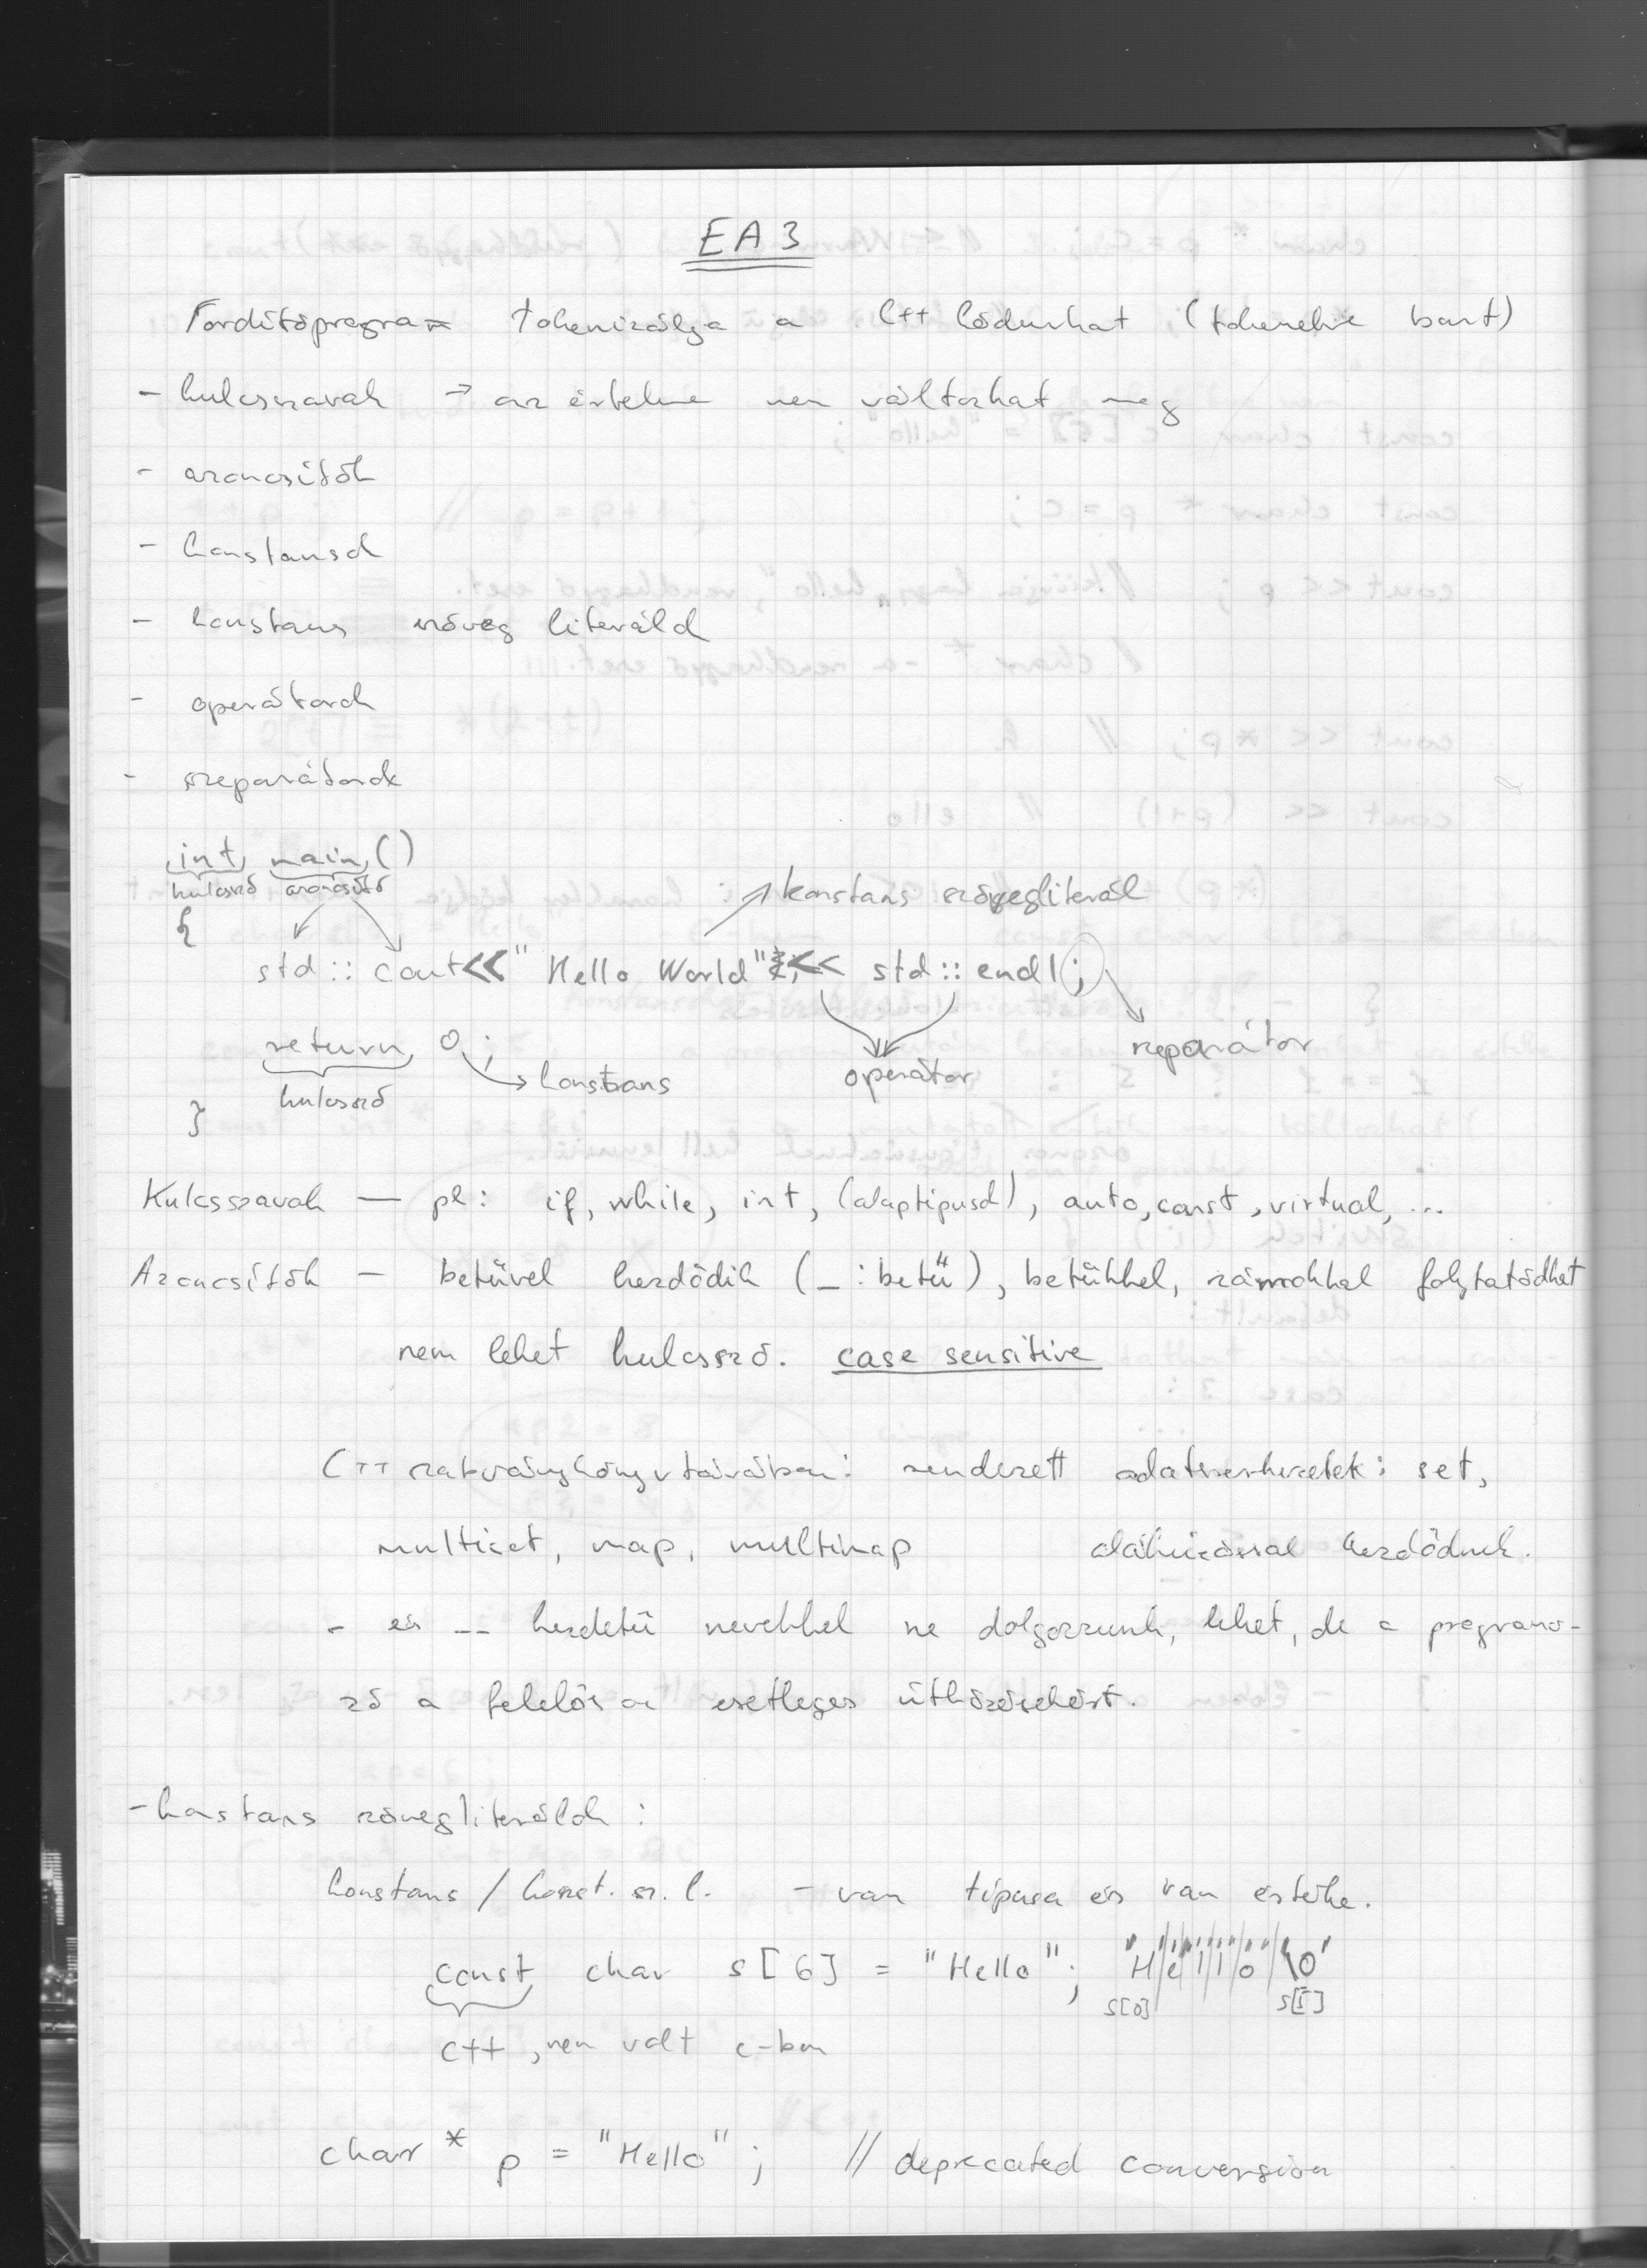 EA 3
Fordítóprogram tokenizálja a C++ kódunkat (tokenekre bont)
- kulcsszavak → az értelme nem változhat meg
- azonosítók
- konstansok
- konstans szöveg literálok
- operátorok
- szeparátorok
int main ()
kulcsszó azonosító
{
konstans szövegliterál
std :: cout << "Hello World" << std :: endl ;
szeparátor
return 0 ;
operátor
konstans
kulcsszó
}
Kulcsszavak — pl: if, while, int, (alaptípusok), auto, const, virtual, ...
Azonosítók — betűvel kezdődik ( _ : betű ), betűkkel, számokkal folytatódhat
nem lehet kulcsszó. case sensitive
C++ szabványkönyvtárában: rendezett adatszerkezetek: set,
multiset, map, multimap aláhúzással kezdődnek.
_ és __ kezdetű nevekkel ne dolgozzunk, lehet, de a programo-
zó a felelős az esetleges ütközésekért.
- konstans szövegliterálok :
konstans / konst. sz. l. - van típusa és van értéke.
const char s[6] = "Hello"; 'H'/'e'/'l'/'l'/'o'/'\0'
s[0] s[5]
C++, nem volt c-ben
char * p = "Hello" ; // deprecated conversion